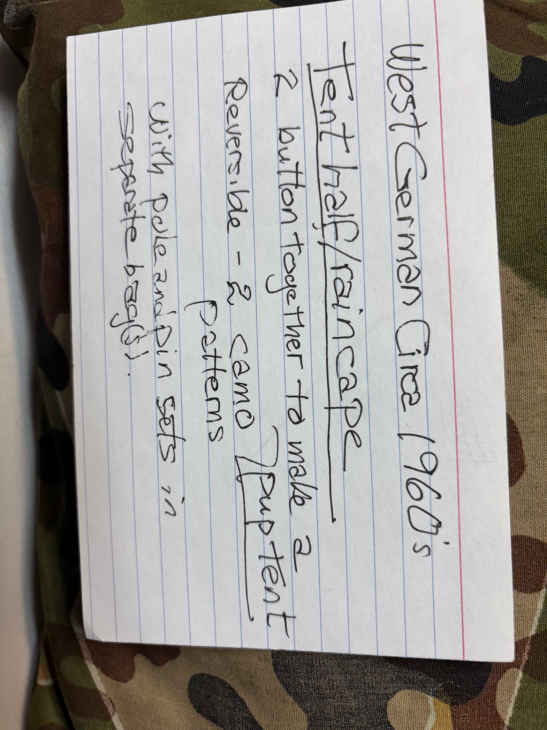 West German Circa 1960's
Tent half/raincape
2 button together to make a
pup tent
Reversible - 2 camo
patterns
with pole and pin sets in
seperate bag(s).